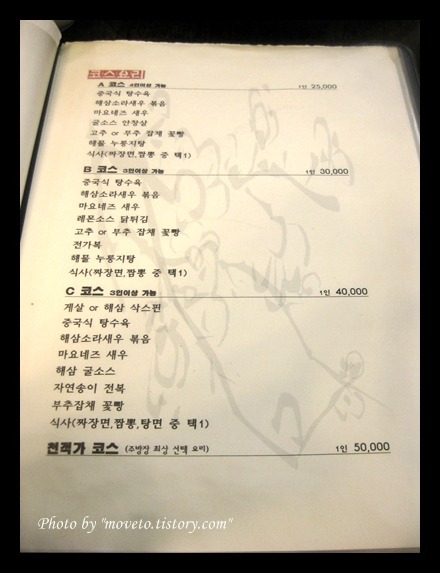 코스요리
A 코스 4인이상 가능 1인 25,000
중국식 탕수육
해삼소라새우 볶음
마요네즈 새우
굴소스 안창살
고추 or 부추 잡채 꽃빵
해물 누룽지탕
식사(짜장면,짬뽕 중 택1)
B 코스 3인이상 가능 1인 30,000
중국식 탕수육
해삼소라새우 볶음
마요네즈 새우
레몬소스 닭튀김
고추 or 부추 잡채 꽃빵
전가복
해물 누룽지탕
식사(짜장면,짬뽕 중 택1)
C 코스 3인이상 가능 1인 40,000
게살 or 해삼 삭스핀
중국식 탕수육
해삼소라새우 볶음
마요네즈 새우
해삼 굴소스
자연송이 전복
부추잡채 꽃빵
식사(짜장면,짬뽕,탕면 중 택1)
천객가 코스 (주방장 최상 선택 요리) 1인 50,000
Photo by "moveto.tistory.com"